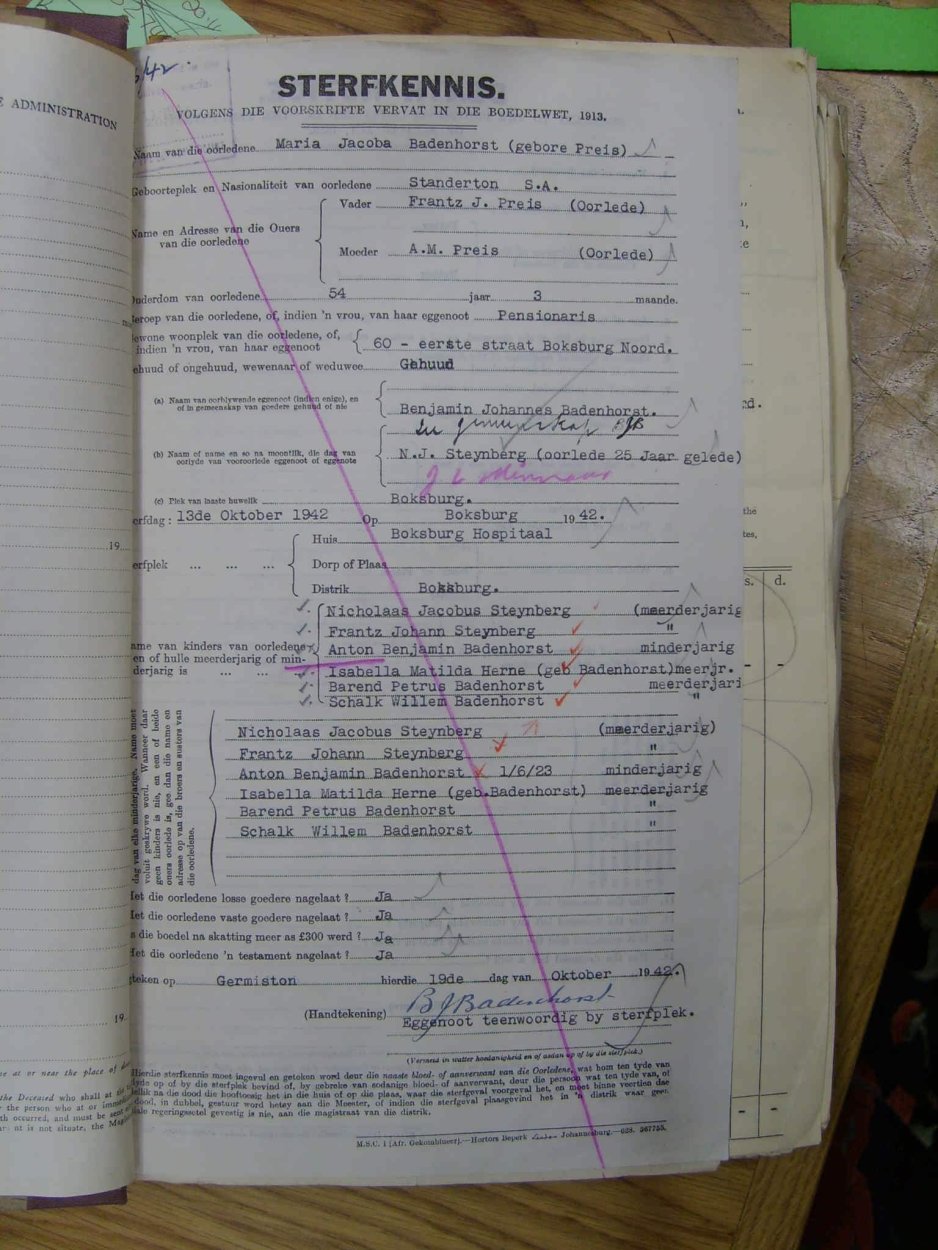 E ADMINISTRATION
/42.
STERFKENNIS.
VOLGENS DIE VOORSKRIFTE VERVAT IN DIE BOEDELWET, 1913.
Naam van die oorledene Maria Jacoba Badenhorst (gebore Preis)
Geboorteplek en Nasionaliteit van oorledene Standerton S.A.
Name en Adresse van die Ouers van die oorledene
Vader Frantz J. Preis (Oorlede)
Moeder A.M. Preis (Oorlede)
Ouderdom van oorledene 54 jaar 3 maande.
Beroep van die oorledene, of, indien 'n vrou, van haar eggenoot Pensionaris
ewone woonplek van die oorledene, of,
indien 'n vrou, van haar eggenoot 60 - eerste straat Boksburg Noord.
ehuud of ongehuud, wewenaar of weduwee Gehuud
(a) Naam van oorblywende eggenoot (indien enige), en
of in gemeenskap van goedere gehuud of nie
Benjamin Johannes Badenhorst.
In gemeenskap BJB
(b) Naam of name en so na moontlik, die dag van
oorlyde van vooroorlede eggenoot of eggenote
N.J. Steynberg (oorlede 25 Jaar gelede)
(c) Plek van laaste huwelik Boksburg.
erfdag : 13de Oktober 1942 Op Boksburg 19 42.
erfplek ... ... ...
Huis Boksburg Hospitaal
Dorp of Plaas
Distrik Boksburg.
ame van kinders van oorledene
en of hulle meerderjarig of min-
derjarig is ... ...
Nicholaas Jacobus Steynberg (meerderjarig
Frantz Johann Steynberg "
Anton Benjamin Badenhorst minderjarig
Isabella Matilda Herne (geb Badenhorst)meerjr.
Barend Petrus Badenhorst meerderjari
Schalk Willem Badenhorst "
dag van elke minderjarige. Name moet
voluit geskrywe word. Wanneer daar
geen kinders is nie, en een of beide
ouers oorlede is, gee dan die name en
adresse op van die broers en susters van
die oorledene.
Nicholaas Jacobus Steynberg (meerderjarig)
Frantz Johann Steynberg "
Anton Benjamin Badenhorst 1/6/23 minderjarig
Isabella Matilda Herne (geb.Badenhorst) meerderjarig
Barend Petrus Badenhorst "
Schalk Willem Badenhorst "
Het die oorledene losse goedere nagelaat ? Ja
Het die oorledene vaste goedere nagelaat ? Ja
s die boedel na skatting meer as £300 werd ? Ja
Het die oorledene 'n testament nagelaat ? Ja
teken op Germiston hierdie 19de dag van Oktober 1942.
(Handtekening) BJBadenhorst
Eggenoot teenwoordig by sterfplek.
(Vermeld in watter hoedanigheid en of aldan op of by die sterfplek.)
Hierdie sterfkennis moet ingevul en geteken word deur die naaste bloed- of aanverwant van die Oorledene, wat hom ten tyde van
lyde op of by die sterfplek bevind of, by gebreke van sodanige bloed- of aanverwant, deur die persoon wat ten tyde van, of
ellik na die dood die hoofhoosig het in die huis of op die plaas, waar die sterfgeval voorgeval het, en moet binne veertien dae
dood, in dubbel, gestuur word hetsy aan die Meester, of indien die sterfgeval plaasgevind het in 'n distrik waar geen
iale regeringsetel gevestig is nie, aan die magistraat van die distrik.
M.S.C. 1 [Afr. Gekombineer].—Hortors Beperk Johannesburg.—628. 367755.
19
19
e at or near the place of
the Deceased who shall at the
r the person who at or
th occurred, and must be sent
at is not situate, the
the
tes,
s. d.